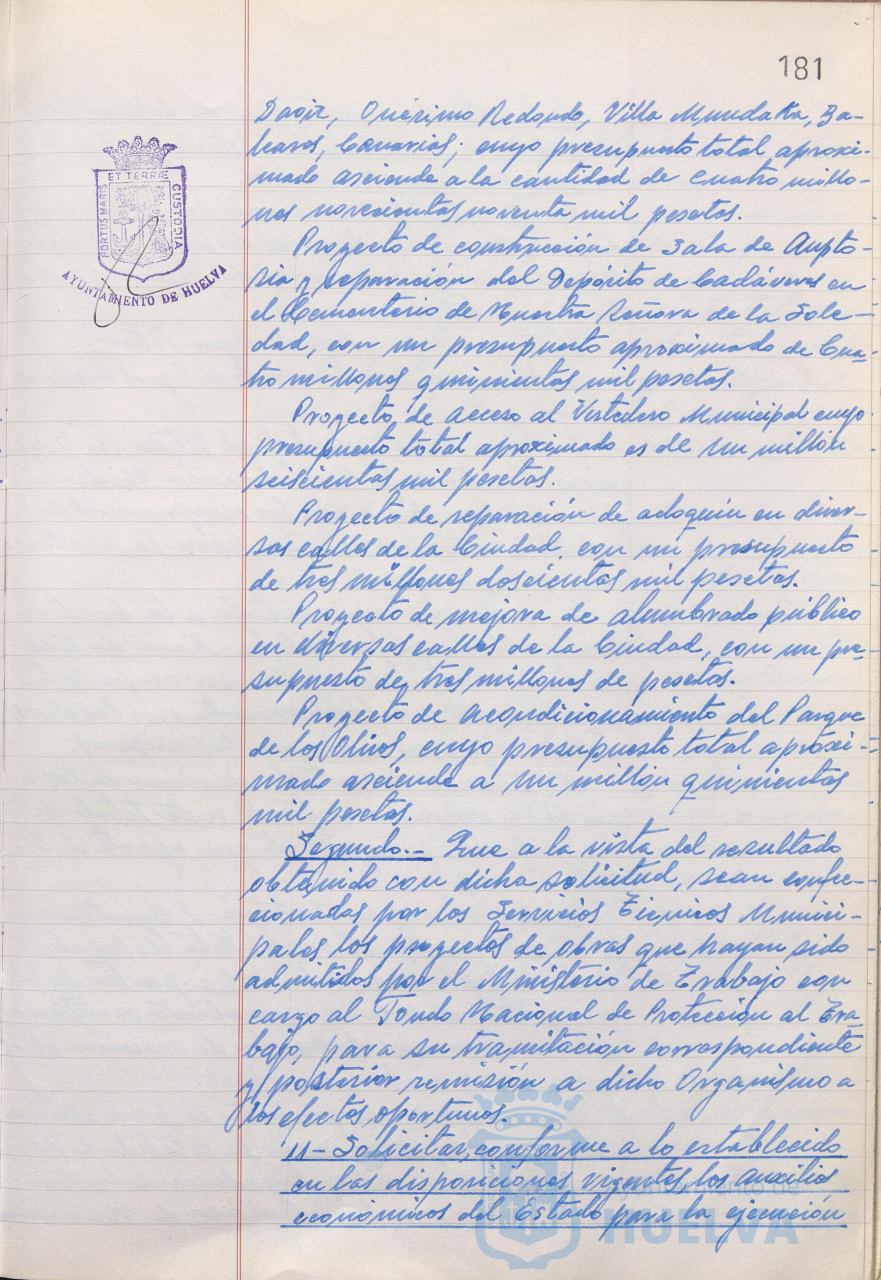 181
PORTUS MARIS ET TERRÆ CUSTODIA
AYUNTAMIENTO DE HUELVA
Daoiz, Onésimo Redondo, Villa Mundaka, Ba-
leares, Canarias; cuyo presupuesto total aproxi-
mado asciende a la cantidad de cuatro millo-
nes novecientas noventa mil pesetas.
Proyecto de construcción de Sala de Autop-
sia y reparación del Depósito de Cadáveres en
el Cementerio de Nuestra Señora de la Sole-
dad, con un presupuesto aproximado de Cua-
tro millones quinientas mil pesetas.
Proyecto de acceso al Vertedero Municipal cuyo
presupuesto total aproximado es de un millón
seiscientas mil pesetas.
Proyecto de reparación de adoquín en diver-
sas calles de la Ciudad, con un presupuesto
de tres millones doscientas mil pesetas.
Proyecto de mejora de alumbrado público
en diversas calles de la Ciudad, con un pre-
supuesto de tres millones de pesetas.
Proyecto de acondicionamiento del Parque
de los Olivos, cuyo presupuesto total aproxi-
mado asciende a un millón quinientas
mil pesetas.
Segundo.- Que a la vista del resultado
obtenido con dicha solicitud, sean confec-
cionadas por los Servicios Técnicos Munici-
pales los proyectos de obras que hayan sido
admitidos por el Ministerio de Trabajo con
cargo al Fondo Nacional de Protección al Tra-
bajo, para su tramitación correspondiente
y posterior remisión a dicho Organismo a
los efectos oportunos.
11- Solicitar, conforme a lo establecido
en las disposiciones vigentes, los auxilios
económicos del Estado para la ejecución
Ayuntamiento de
HUELVA